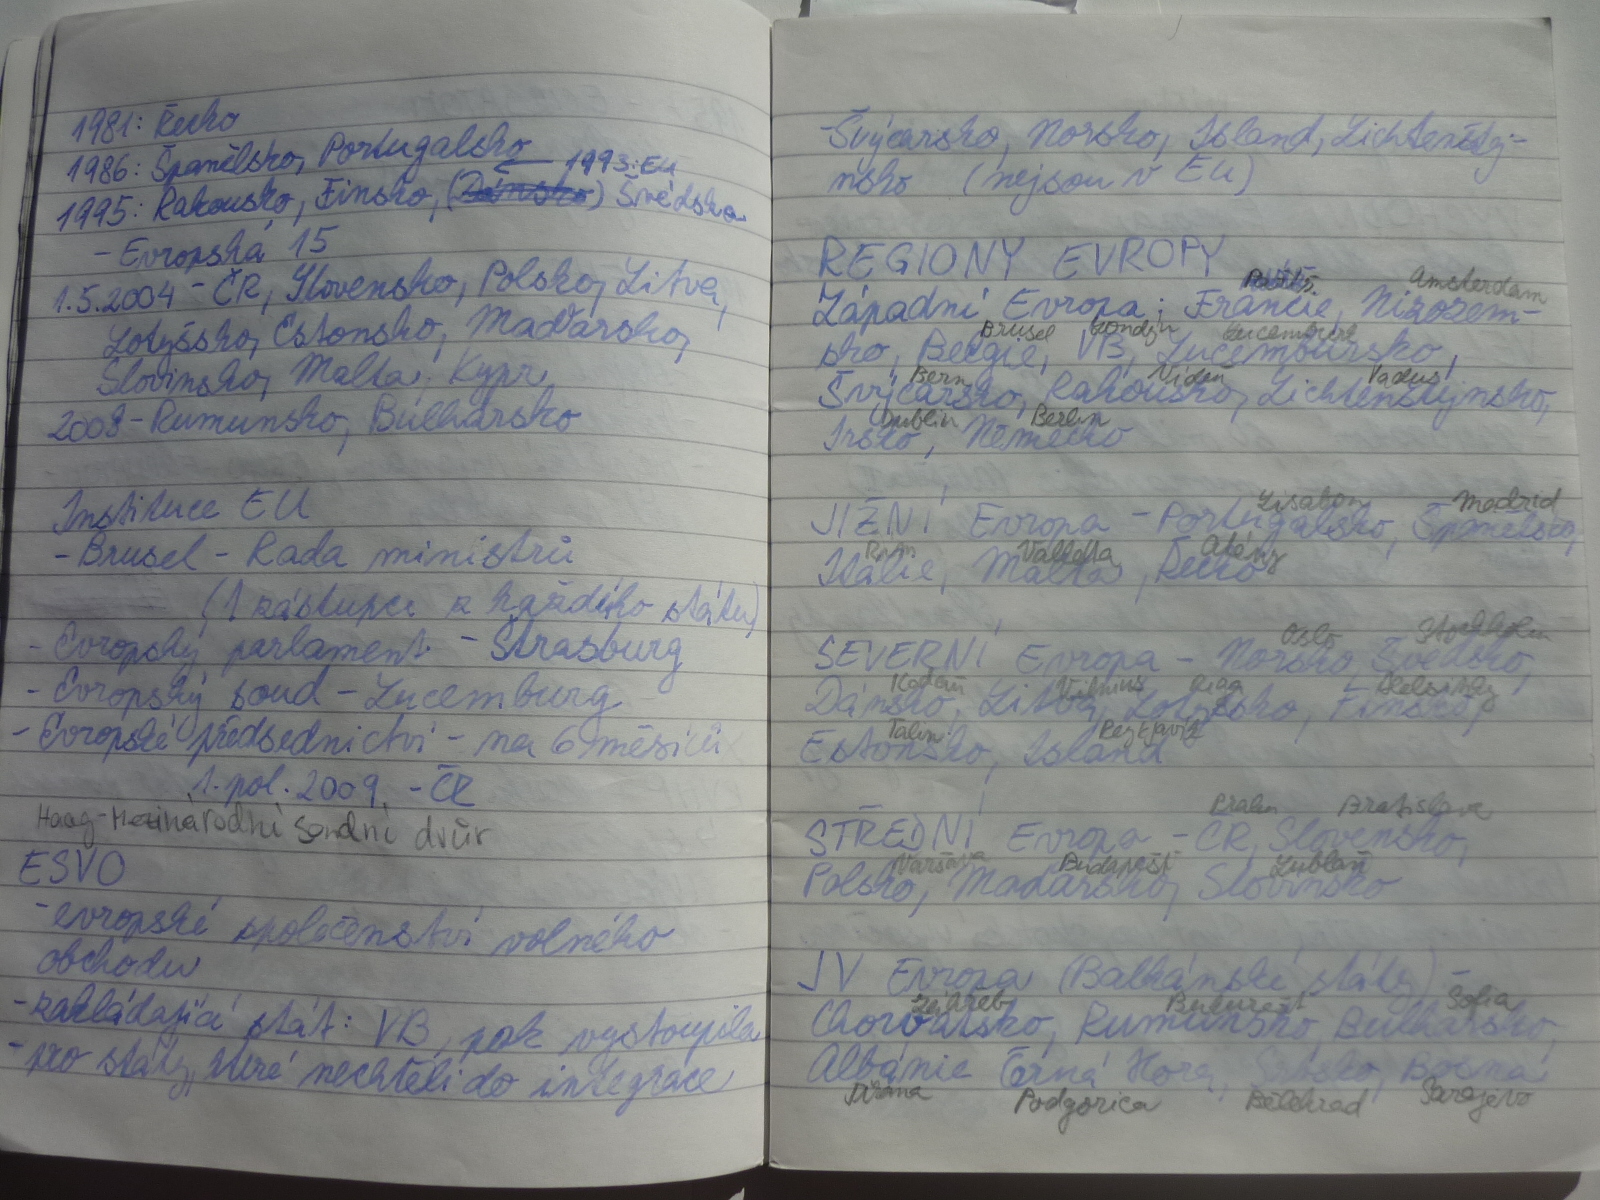 1981: Řecko
1986: Španělsko, Portugalsko
1993: EU
1995: Rakousko, Finsko, (Dánsko) Švédsko
- Evropská 15
1.5.2004 - ČR, Slovensko, Polsko, Litva,
Lotyšsko, Estonsko, Maďarsko,
Slovinsko, Malta, Kypr
2008 - Rumunsko, Bulharsko
Instituce EU
- Brusel - Rada ministrů
(1 zástupce z každého státu)
- Evropský parlament - Štrasburg
- Evropský soud - Lucemburg
- Evropské předsednictví - na 6 měsíců
1. pol. 2009 - ČR
Haag - Mezinárodní soudní dvůr
ESVO
- evropské společenství volného
obchodu
- zakládající stát: VB, pak vystoupila
- pro státy, které nechtěli do integrace
- Švýcarsko, Norsko, Island, Lichtenštej-
nsko (nejsou v EU)
REGIONY EVROPY
Paříž Amsterdam
Západní Evropa: Francie, Nizozem-
Brusel Londýn Lucemburk
sko, Belgie, VB, Lucembursko,
Bern Vídeň Vaduz
Švýcarsko, Rakousko, Lichtenštjnsko,
Dublin Berlin
Irsko, Německo
Lisabon Madrid
JIŽNÍ Evropa - Portugalsko, Španělsko,
Řím Valletta Atény
Itálie, Malta, Řecko
Oslo Stockholm
SEVERNÍ Evropa - Norsko, Švédsko,
Kodaň Vilnius Riga Helsinky
Dánsko, Litva, Lotyšsko, Finsko,
Talin Reykjavík
Estonsko, Island
Praha Bratislava
STŘEDNÍ Evropa - ČR, Slovensko,
Varšava Budapešť Lublaň
Polsko, Maďarsko, Slovinsko
JV Evropa (Balkánské státy) -
Záhřeb Bukurešť Sofia
Chorvatsko, Rumunsko, Bulharsko,
Albánie Černá Hora, Srbsko, Bosna
Tirana Podgorica Bělehrad Sarajevo